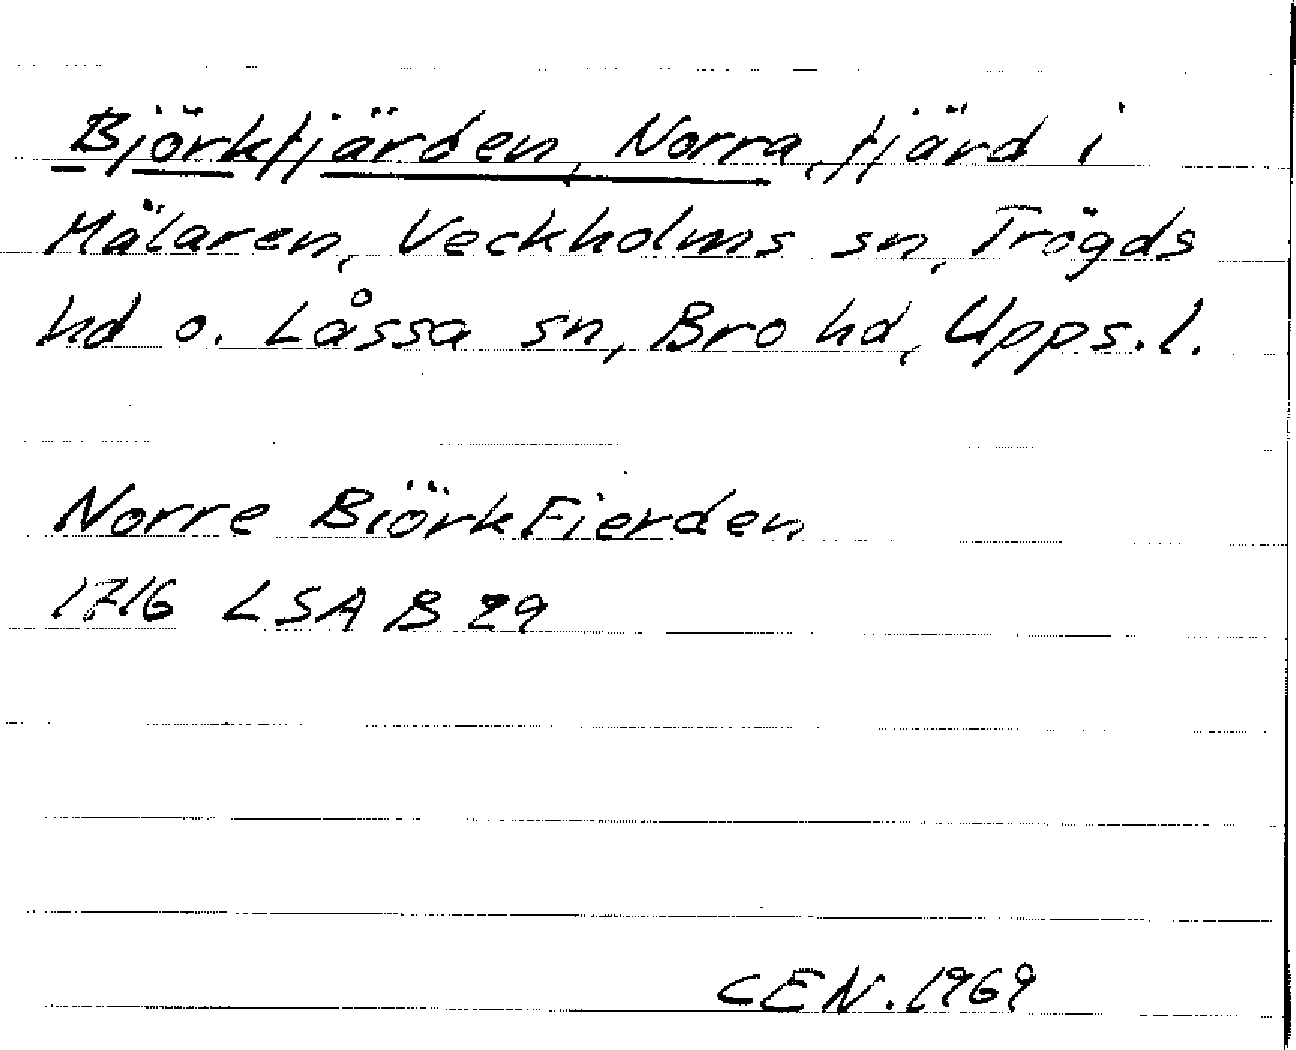 Björkfjärden, Norra, fjärd i
Mälaren, Veckholms sn, Trögds
hd o. Låssa sn, Bro hd, Upps. l.
Norre BiörkFierden
1716 LSA B 29
CEN. 1969